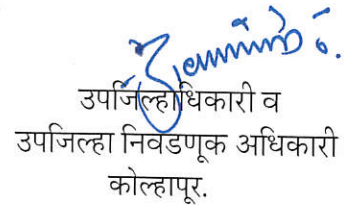 उपजिल्हाधिकारी व
उपजिल्हा निवडणूक अधिकारी
कोल्हापूर.